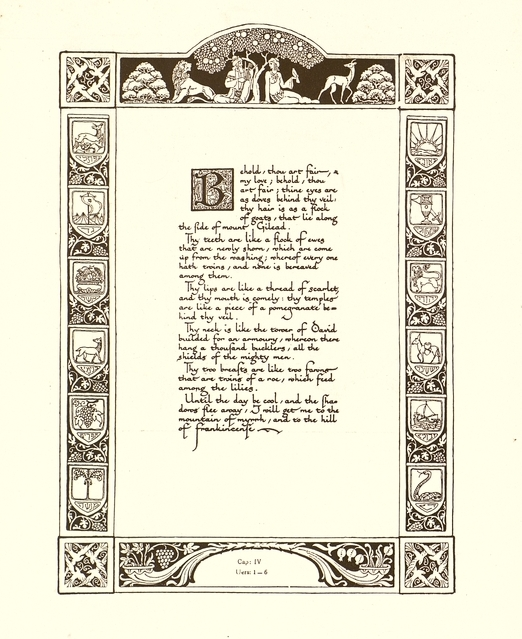 Behold, thou art fair, a
my love; behold, thou
art fair; thine eyes are
as doves behind thy veil:
thy hair is as a flock
of goats, that lie along
the side of mount Gilead.
Thy teeth are like a flock of ewes
that are newly shorn, which are come
up from the washing; whereof every one
hath twins, and none is bereaved
among them.
Thy lips are like a thread of scarlet,
and thy mouth is comely: thy temples
are like a piece of a pomegranate be=
hind thy veil.
Thy neck is like the tower of David
builded for an armoury, whereon there
hang a thousand bucklers, all the
shields of the mighty men.
Thy two breasts are like two fawns
that are twins of a roe, which feed
among the lilies.
Until the day be cool, and the sha=
dows flee away, I will get me to the
mountain of myrrh, and to the hill
of frankincense
Cap: IV
Vers: 1—6